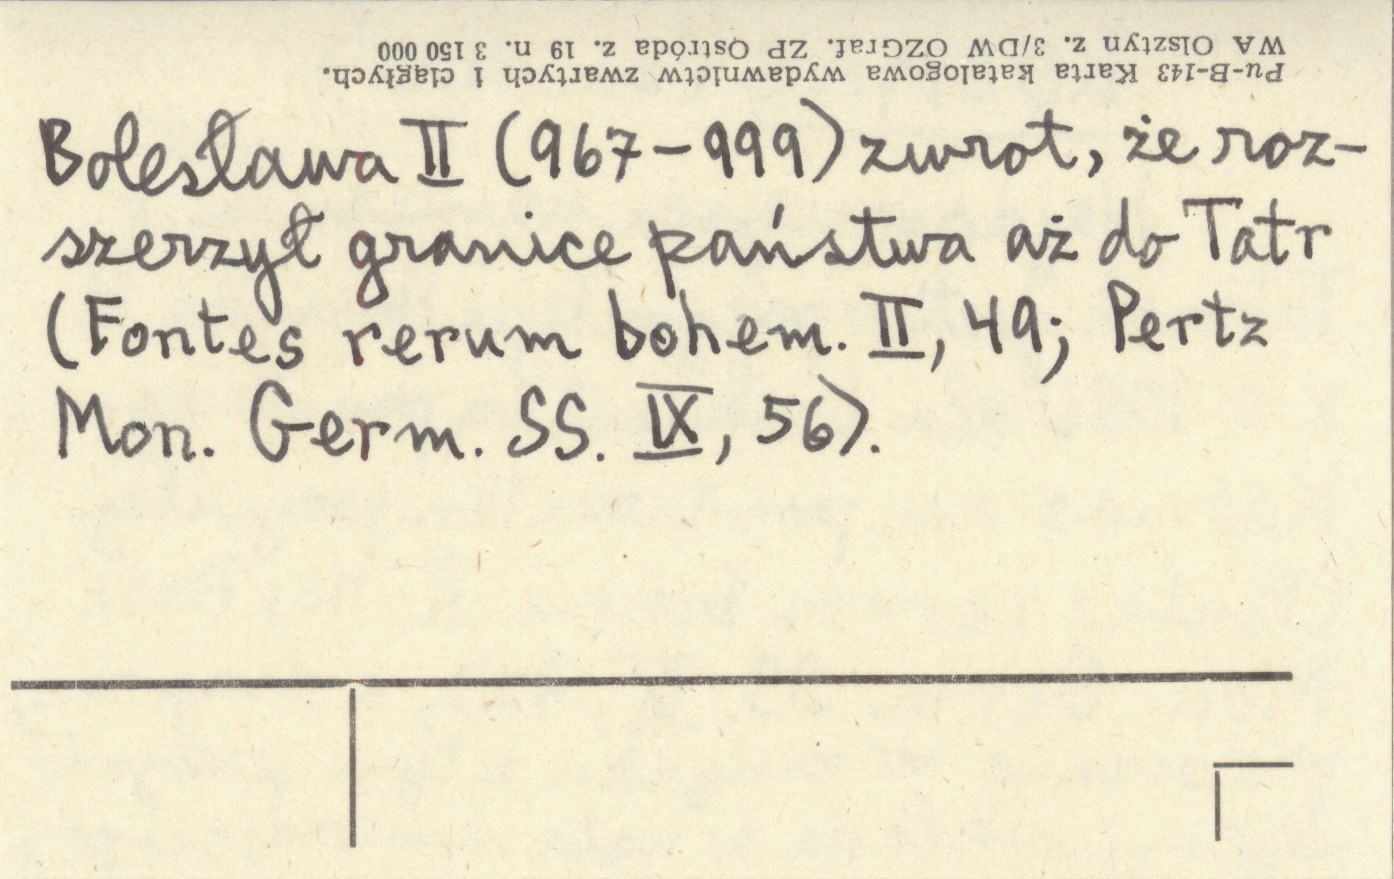 Pu-B-143 Karta katalogowa wydawnictw zwartych i ciągłych.
WA Olsztyn z. 3/DW OZGraf. ZP Ostróda z. 19 n. 3 150 000
Bolesława II (967-999) zwrot, że roz-
szerzył granice państwa aż do Tatr
(Fontes rerum bohem. II, 49; Pertz
Mon. Germ. SS. IX, 56).